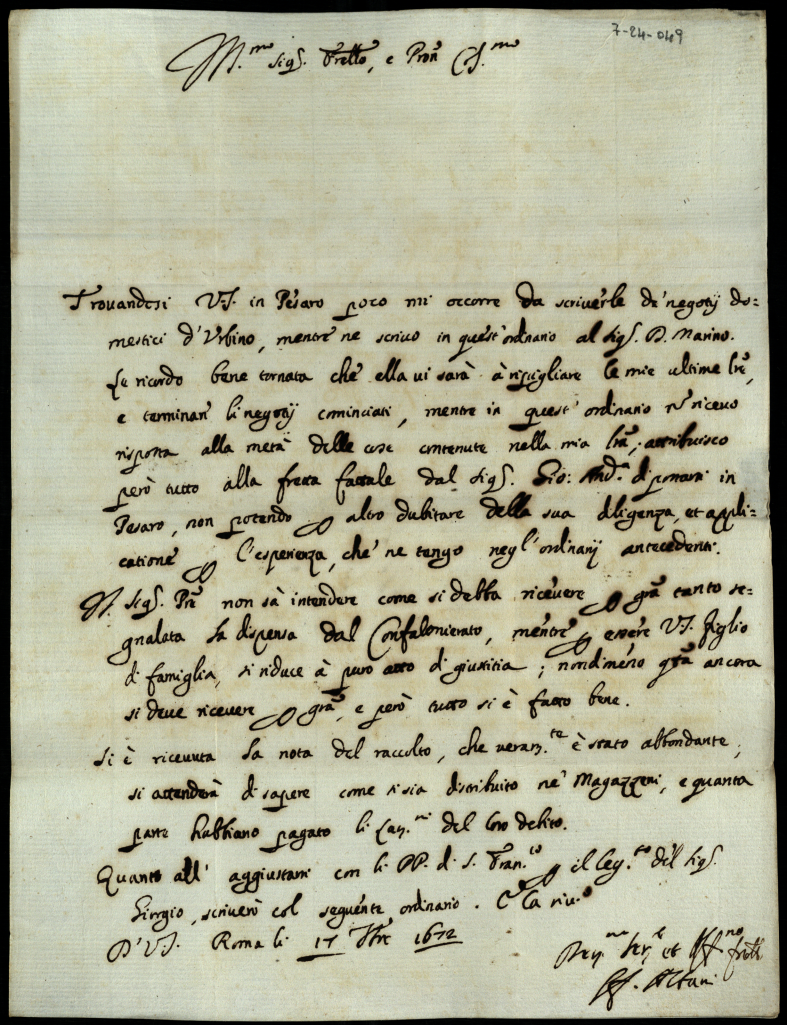 7-24-049
Ill.mo Sig.r Frello, e Pron Oss.mo
Trovandosi V.S. in Pesaro poco mi occorre da scriverle de' negotij do=
mestici d'Urbino, mentre ne scrivo in quest'ordinario al Sig.r D. Marino.
Le ricordo bene tornata che ella vi sarà à ripigliare le mie ultime lre,
e terminar li negotij cominciati, mentre in quest'ordinario nõ ricevo
risposta alla metà delle cose contenute nella mia lra; attribuisco
però tutto alla fretta fattale dal Sig.r Gio: And.a di portarsi in
Pesaro, non potendo p altro dubitare della sua diligenza, et appli=
catione p l'esperienza, che ne tengo negl'ordinarij antecedenti.
Il Sig.r Pre non sà intendere come si debba ricevere p gra tanto se=
gnalata la dispensa dal Confalonierato, mentre p essere V.S. figlio
di famiglia, si riduce à puro atto di giustitia; nondimeno qta ancora
si deve ricevere p gra, e però tutto si è fatto bene.
Si è ricevuta la nota del raccolto, che veram.te è stato abbondante,
si attenderà di sapere come si sia distribuito ne' Magazzeni, e quanta
parte habbiano pagato li del loro debito.
Quanto all' aggiustarsi con li PP. di S. Fran.co p il leg.to del Sig.r
Giorgio, scriverò col seguente ordinario. E la riv.o
D'V.S. Roma li 17 7bre 1672
Dev.mo Ser.e et Aff.mo frello
Albani